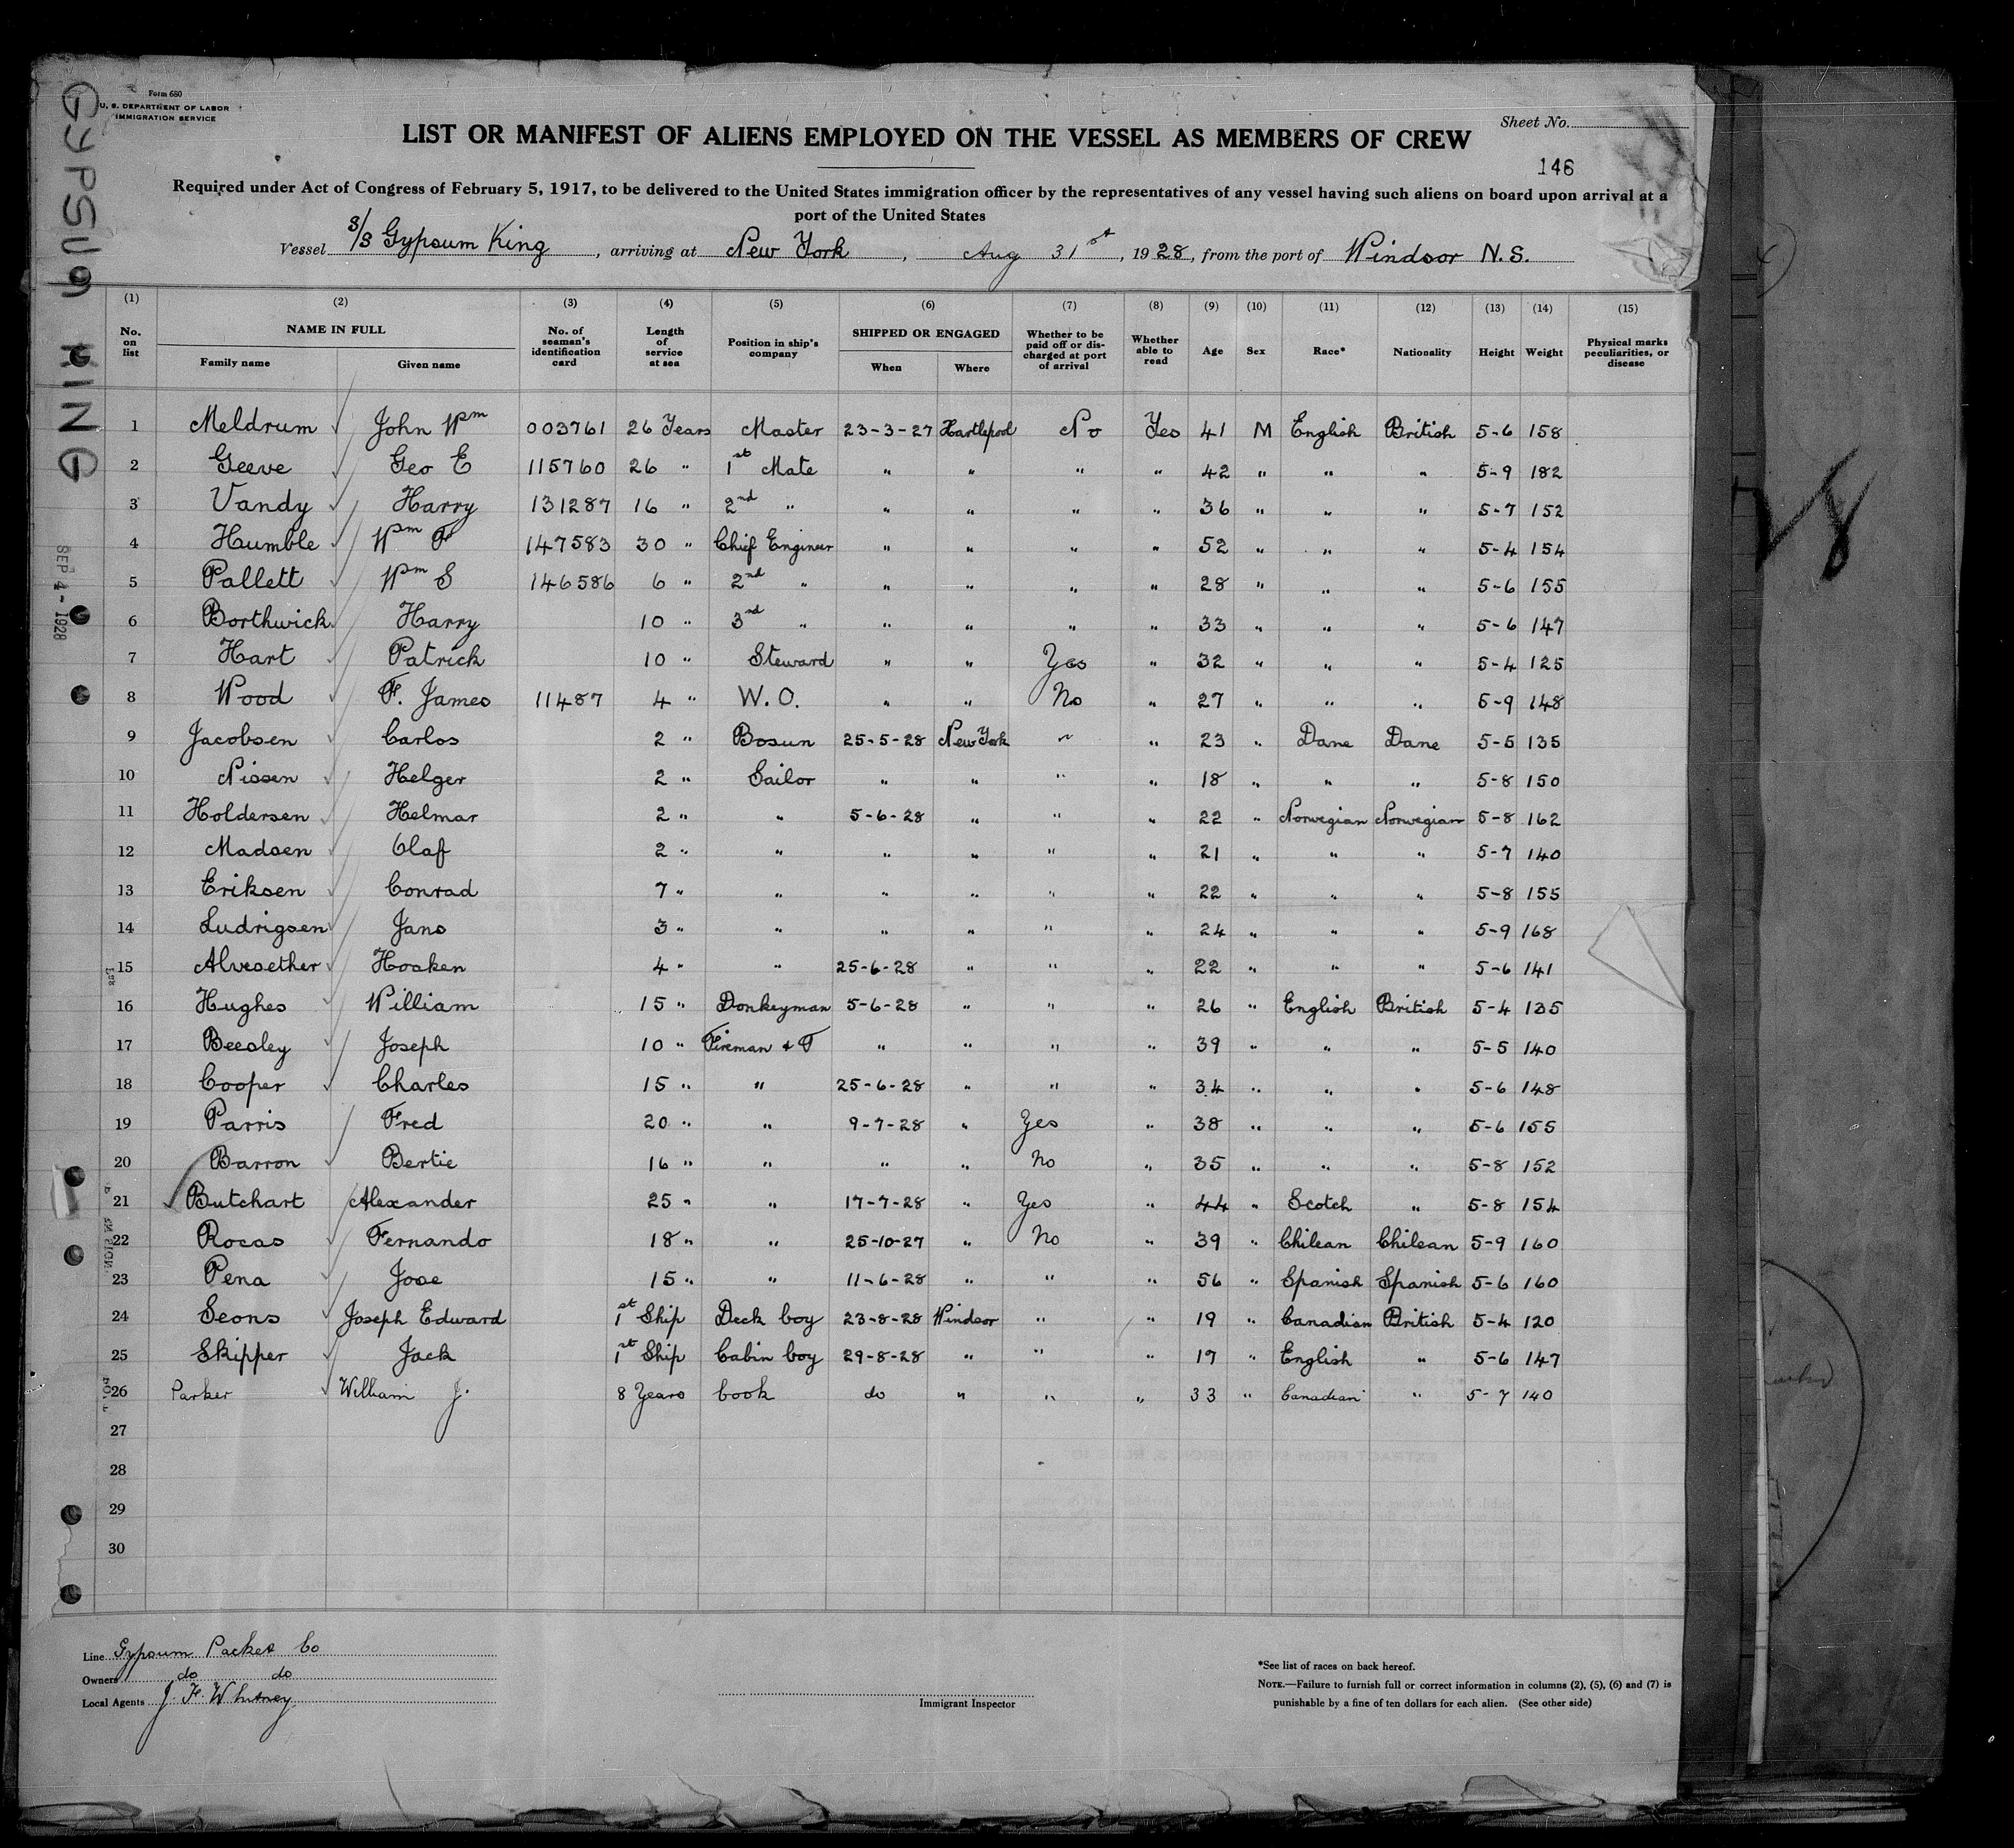 Form 680
U. S. DEPARTMENT OF LABOR
IMMIGRATION SERVICE
GYPSUM KING
SEP 4 - 1928
Sheet No.
LIST OR MANIFEST OF ALIENS EMPLOYED ON THE VESSEL AS MEMBERS OF CREW
146
Required under Act of Congress of February 5, 1917, to be delivered to the United States immigration officer by the representatives of any vessel having such aliens on board upon arrival at a
port of the United States
Vessel S/S Gypsum King, arriving at New York, Aug 31st, 1928, from the port of Windsor N.S.
(1) (2) (3) (4) (5) (6) (7) (8) (9) (10) (11) (12) (13) (14) (15)
No. on list NAME IN FULL Family name Given name No. of seaman's identification card Length of service at sea Position in ship's company SHIPPED OR ENGAGED When Where Whether to be paid off or discharged at port of arrival Whether able to read Age Sex Race* Nationality Height Weight Physical marks peculiarities, or disease
1 Meldrum John Wm 003761 26 Years Master 23-3-27 Hartlepool No Yes 41 M English British 5-6 158
2 Geeve Geo E 115760 26 " 1st Mate " " " " 42 " " " 5-9 182
3 Vandy Harry 131287 16 " 2nd " " " " " 36 " " " 5-7 152
4 Humble Wm F 147583 30 " Chief Engineer " " " " 52 " " " 5-4 154
5 Pallett Wm S 146586 6 " 2nd " " " " " 28 " " " 5-6 155
6 Borthwick Harry 10 " 3rd " " " " " 33 " " " 5-6 147
7 Hart Patrick 10 " Steward " " Yes " 32 " " " 5-4 125
8 Wood F. James 11487 4 " W.O. " " No " 27 " " " 5-9 148
9 Jacobsen Carlos 2 " Bosun 25-5-28 New York " " 23 " Dane Dane 5-5 135
10 Nissen Helger 2 " Sailor " " " " 18 " " " 5-8 150
11 Holdersen Helmar 2 " " 5-6-28 " " " 22 " Norwegian Norwegian 5-8 162
12 Madsen Olaf 2 " " " " " " 21 " " " 5-7 140
13 Eriksen Conrad 7 " " " " " " 22 " " " 5-8 155
14 Ludrigsen Jans 3 " " " " " " 24 " " " 5-9 168
15 Alvesether Hoaken 4 " " 25-6-28 " " " 22 " " " 5-6 141
16 Hughes William 15 " Donkeyman 5-6-28 " " " 26 " English British 5-4 135
17 Beesley Joseph 10 " Fireman & T " " " " 39 " " " 5-5 140
18 Cooper Charles 15 " " 25-6-28 " " " 34 " " " 5-6 148
19 Parris Fred 20 " " 9-7-28 " Yes " 38 " " " 5-6 155
20 Barron Bertie 16 " " " " No " 35 " " " 5-8 152
21 Butchart Alexander 25 " " 17-7-28 " Yes " 44 " Scotch " 5-8 154
22 Rocas Fernando 18 " " 25-10-27 " No " 39 " Chilean Chilean 5-9 160
23 Pena Jose 15 " " 11-6-28 " " " 56 " Spanish Spanish 5-6 160
24 Seons Joseph Edward 1st Ship Deck boy 23-8-28 Windsor " " 19 " Canadian British 5-4 120
25 Skipper Jack 1st Ship Cabin boy 29-8-28 " " " 17 " English " 5-6 147
26 Parker William J. 8 Years Cook do " " " 33 " Canadian " 5-7 140
27
28
29
30
Line Gypsum Packet Co
Owners do do
Local Agents J. F. Whitney
Immigrant Inspector
*See list of races on back hereof.
NOTE.—Failure to furnish full or correct information in columns (2), (5), (6) and (7) is
punishable by a fine of ten dollars for each alien. (See other side)